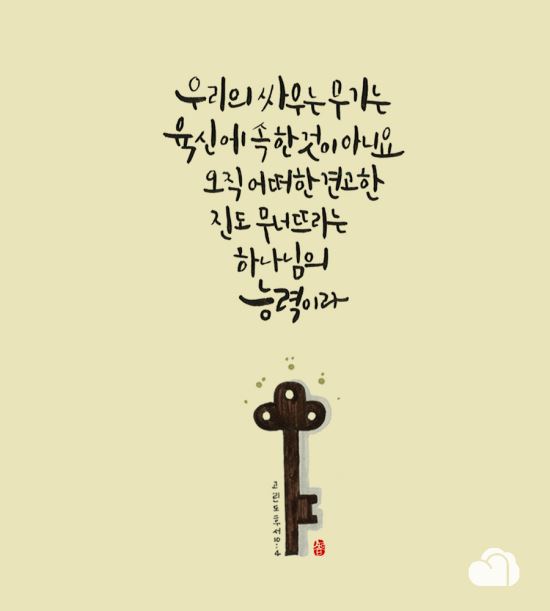 우리의 싸우는 무기는
육신에 속한 것이 아니요
오직 어떠한 견고한
진도 무너뜨리는
하나님의
능력이라